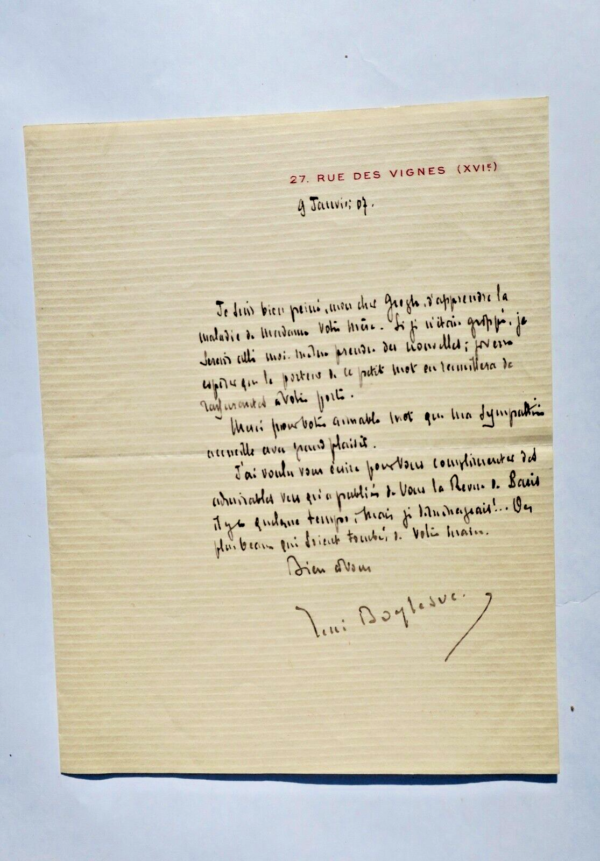 27. RUE DES VIGNES (XVIE)
9 Janvier 07.
Je suis bien peiné, mon cher Gregh, d'apprendre la
maladie de Madame votre Mère. Si je n'étais grippé, je
serais allé moi-même prendre des nouvelles; je veux
espérer que le porteur de ce petit mot en recueillera de
rassurantes à votre porte.
Merci pour votre aimable mot que ma sympathie
accueille avec grand plaisir.
J'ai voulu vous écrire pour vous complimenter des
admirables vers qu'a publiés de vous la Revue de Paris
il y a quelque temps; mais je déménageais!.. Des
plus beaux qui soient tombés de votre main.
Bien à vous
René Boylesve.